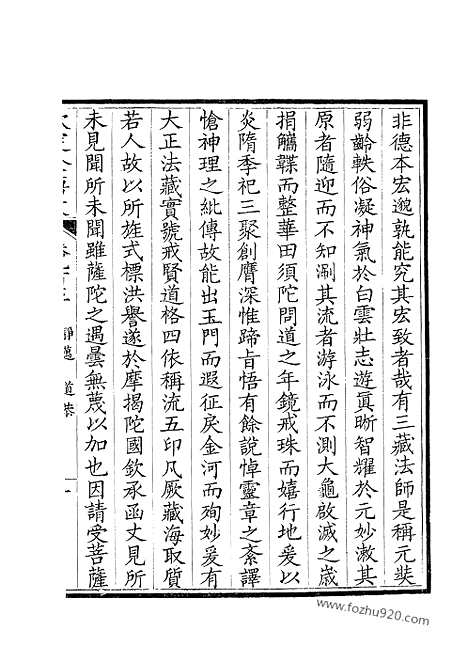 非德本宏邈孰能究其宏致者哉有三藏法師是稱元奘
弱齡軼俗凝神氣於白雲壯志遊真晰智耀於元妙潄其
原者隨迎而不知涮其流者游泳而不測大龜啟滅之歳
捐觿韘而整華田須陀問道之年鏡戒珠而嬉行地爰以
炎隋季祀三聚創膺深惟蹄肯悟有餘說悼靈章之紊譯
愴神理之紕傳故能出玉門而遐征戾金河而殉妙爰有
大正法藏實號戒賢道格四依稱流五印凡厥藏海取質
若人故以所旌式標洪譽遂於摩揭陀國欽承函丈見所
未見聞所未聞雖薩陀之遇曇無蔑以加也因請受菩薩
欽定全唐文
靜邁 道恭
一
www.fozhu920.com